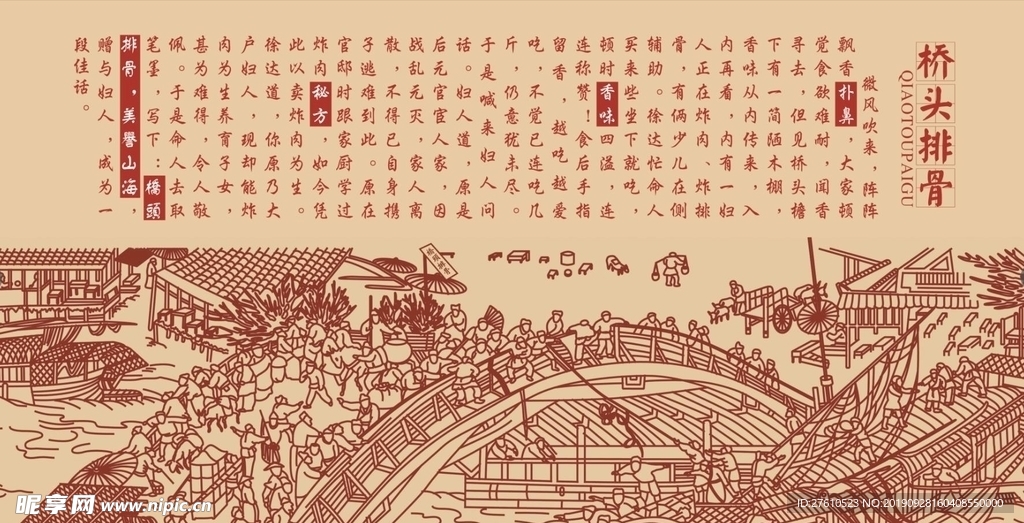 桥头排骨
QIAOTOUPAIGU
微风吹来，阵阵
飘香扑鼻，大家顿
觉食欲难耐，闻香
寻去，但见桥头檐
下有一简陋木棚，
香味从内传来，入
内再看，内有一妇
人正在炸肉、炸排
骨，有俩少儿在侧
辅助。徐达忙命人
买来些坐下就吃，
顿时香味四溢，连
连称赞！食后手指
留香，越吃越爱
吃，不觉已连吃几
斤，仍意犹未尽。
于是喊来妇人问
话。妇人道，原是
后元官官人家，因
战乱元灭，家人离
散，不得已自身携
子逃难到此。原在
官邸时跟家厨学过
炸肉秘方，如今凭
此以卖炸肉为生。
徐达道，你原乃大
户妇人，现却能炸
肉为生养育子女，
甚为难得，令人敬
佩。于是命人去取
笔墨，写下：橋頭
排骨，美譽山海，
赠与妇人，成为一
段佳话。
昵享网 www.nipic.cn
ID:27610523 NO:20190928160408550000